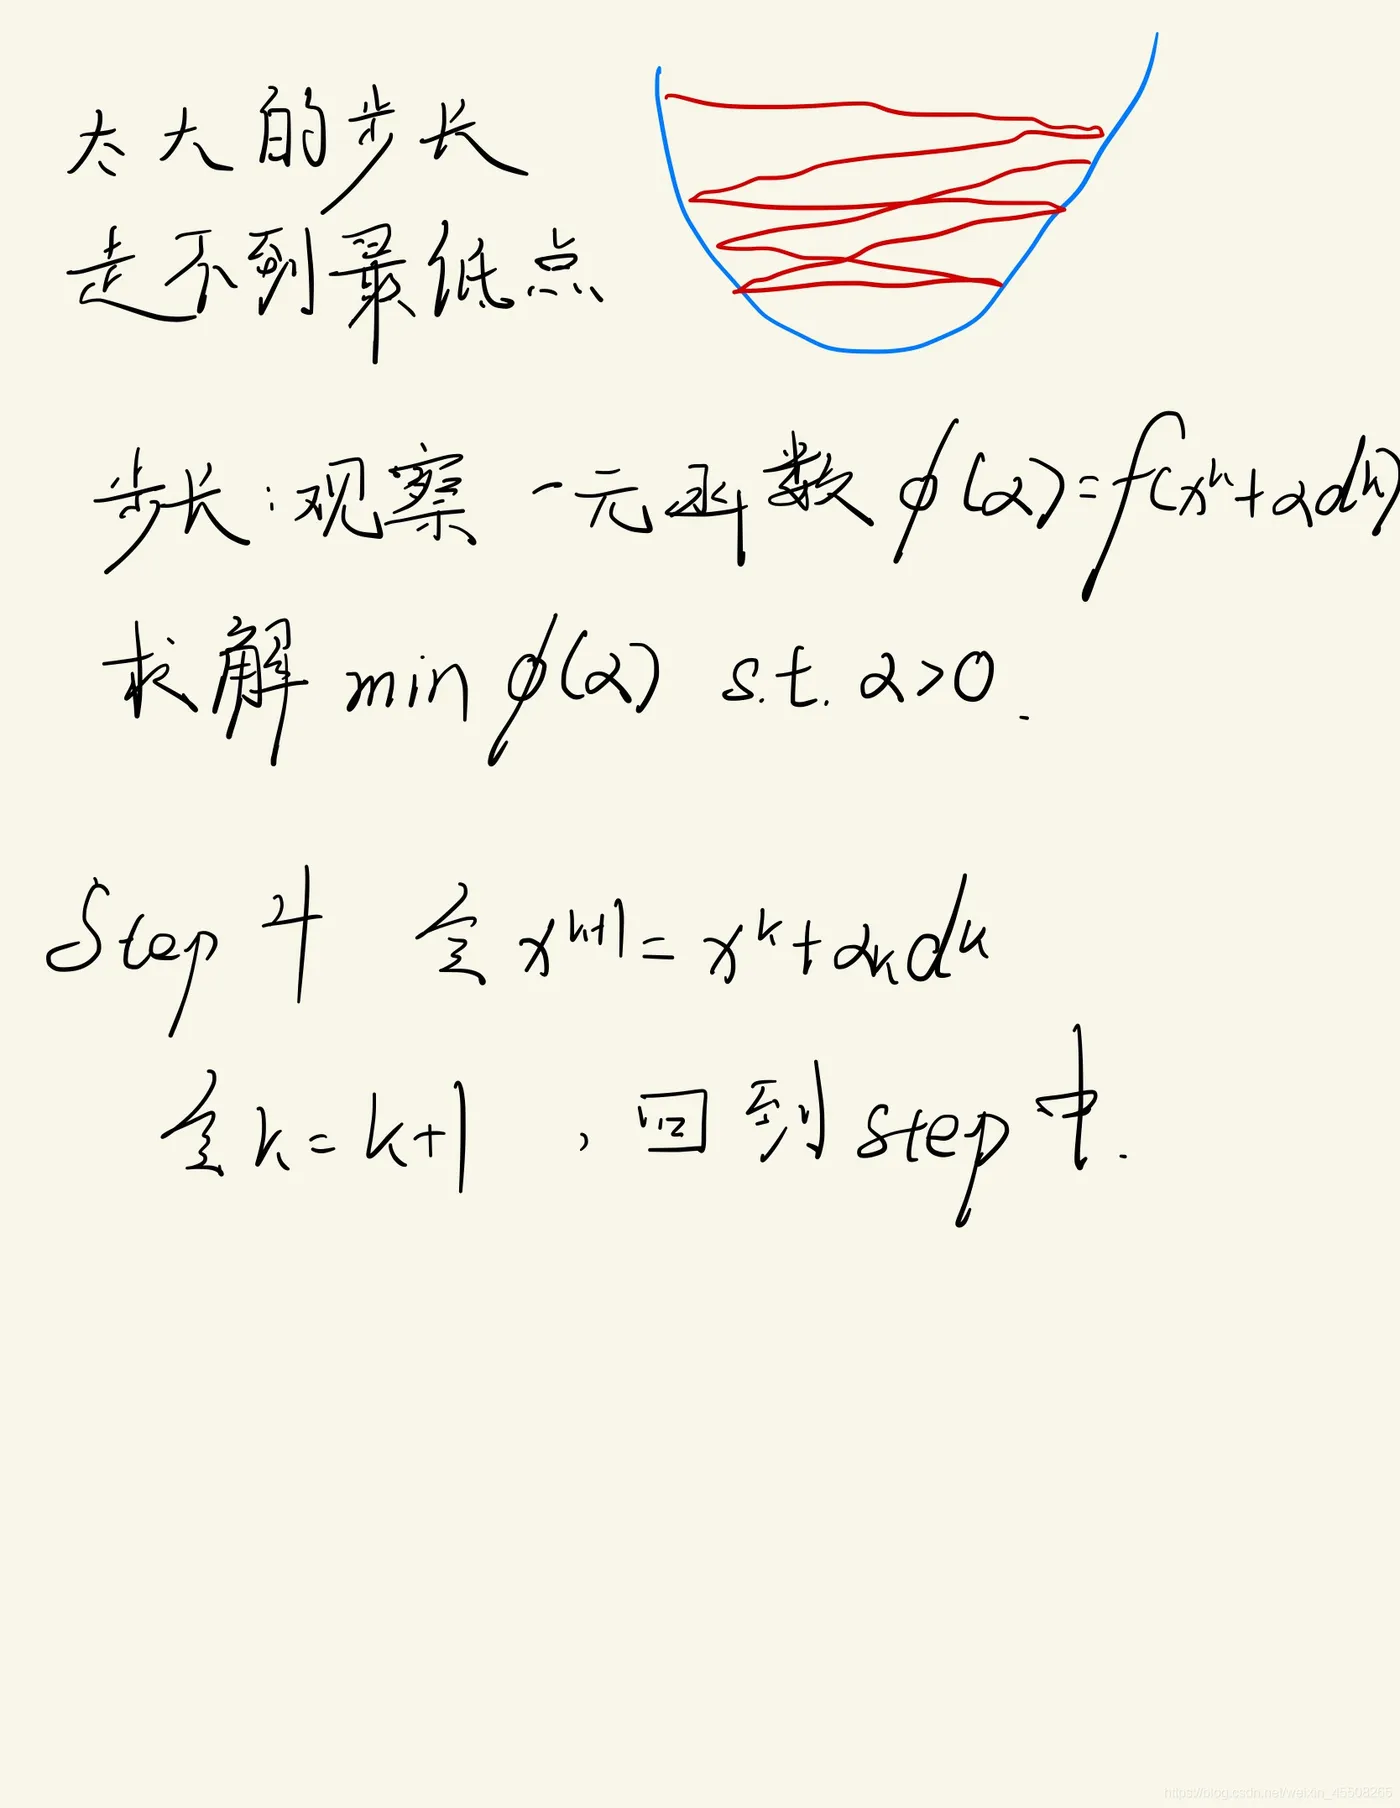 太大的步长
走不到最低点
步长:观察一元函数 φ(α)=f(x^k+αd^k)
求解 min φ(α) s.t. α>0.
Step 4 令 x^{k+1}=x^k+α_k d^k
令 k=k+1, 回到 step
https://blog.csdn.net/weixin_45508265